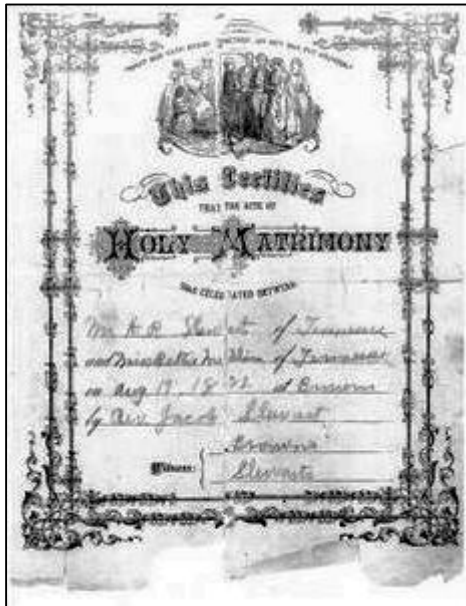 This Certifies
THAT THE RITE OF
HOLY MATRIMONY
WAS CELEBRATED BETWEEN
Mr A R Stewart of Tennessee
and Miss of Tennessee
on Aug 19 18 at
by Rev Jacob Stewart
Browns
Witness: Stewarts